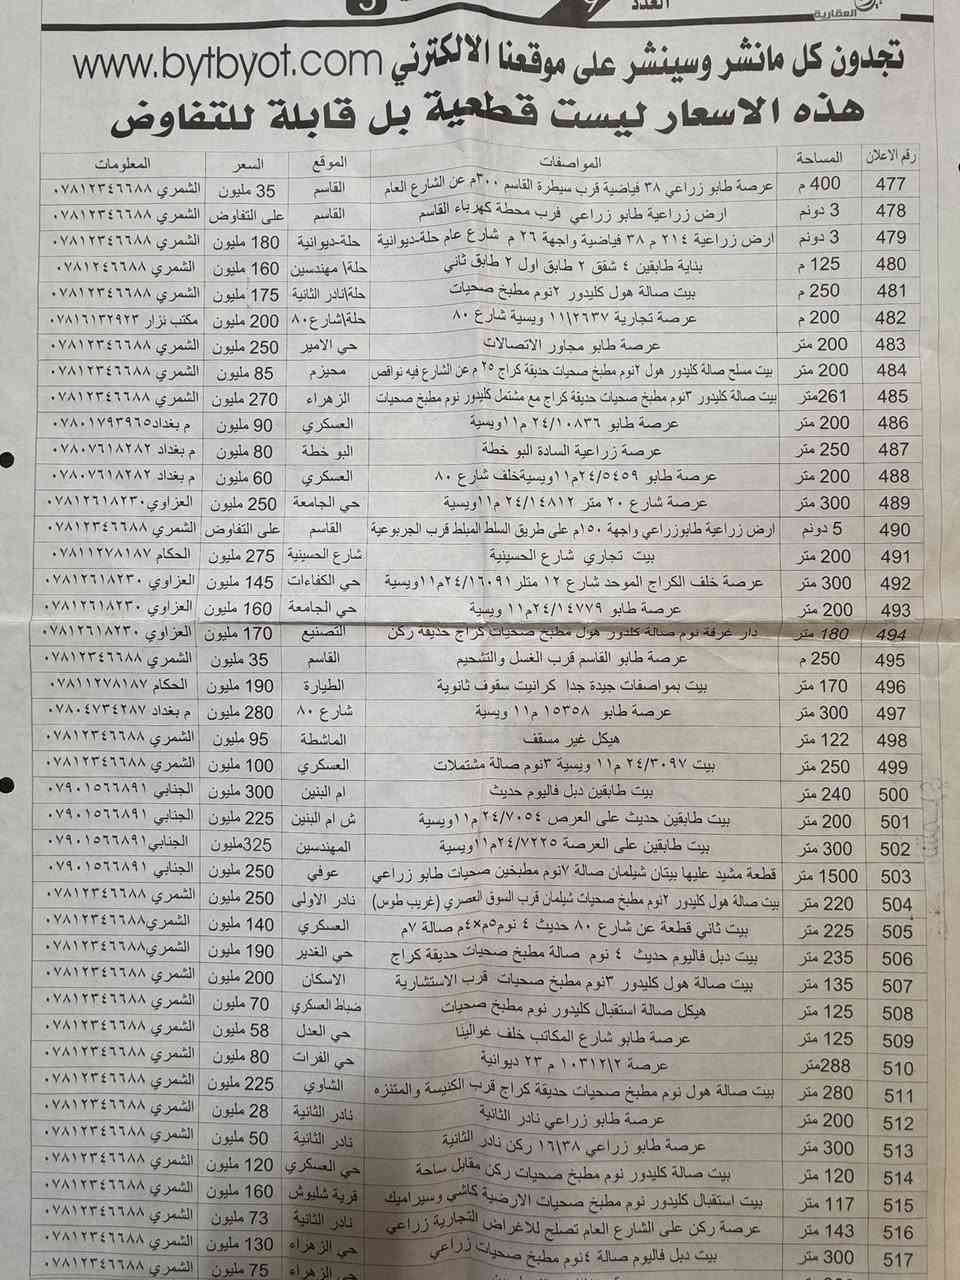 العدد
العقارية
تجدون كل مانشر وسينشر على موقعنا الالكتروني www.bytbyot.com
هذه الاسعار ليست قطعية بل قابلة للتفاوض
رقم الاعلان المساحة المواصفات الموقع السعر المعلومات
477 400 م عرصة طابو زراعي ٣٨ فياضية قرب سيطرة القاسم ٣٠٠م عن الشارع العام القاسم 35 مليون الشمري ٠٧٨١٢٣٤٦٦٨٨
478 3 دونم ارض زراعية طابو زراعي قرب محطة كهرباء القاسم القاسم على التفاوض الشمري ٠٧٨١٢٣٤٦٦٨٨
479 3 دونم ارض زراعية ٢١٤ م ٣٨ فياضية واجهة ٢٦ م شارع عام حلة-ديوانية حلة-ديوانية 180 مليون الشمري ٠٧٨١٢٣٤٦٦٨٨
480 125 م بناية طابقين ٤ شقق ٢ طابق اول ٢ طابق ثاني حلة\ مهندسين 160 مليون الشمري ٠٧٨١٢٤٦٦٨٨
481 250 م بيت صالة هول كليدور ٢نوم مطبخ صحيات حلة\نادر الثانية 175 مليون الشمري ٠٧٨١٢٣٤٦٦٨٨
482 200 م عرصة تجارية ٢٦٣٧\١١ ويسية شارع ٨٠ حلة\شارع٨٠ 200 مليون مكتب نزار ٠٧٨١٦١٣٢٩٢٣
483 200 متر عرصة طابو مجاور الاتصالات حي الامير 250 مليون الشمري ٠٧٨١٢٣٤٦٦٨٨
484 200 متر بيت مسلح صالة كليدور هول ٢نوم مطبخ صحيات حديقة كراج ٢٥ م عن الشارع فيه نواقص محيزم 85 مليون الشمري ٠٧٨١٢٣٤٦٦٨٨
485 261متر بيت صالة كليدور ٣نوم مطبخ صحيات حديقة كراج مع مشتمل كليدور نوم مطبخ صحيات الزهراء 270 مليون الشمري ٠٧٨١٢٣٤٦٦٨٨
486 200 متر عرصة طابو ٢٤/١٠٨٣٦ م١١ويسية العسكري 90 مليون م بغداد٠٧٨٠١٧٩٣٩٦٥
487 250 متر عرصة زراعية السادة البو خطة البو خطة 80 مليون م بغداد ٠٧٨٠٧٦١٨٢٨٢
488 200 متر عرصة طابو ٢٤/٥٤٥٩ م١١ويسيةخلف شارع ٨٠ العسكري 60 مليون م بغداد ٠٧٨٠٧٦١٨٢٨٢
489 300 متر عرصة شارع ٢٠ متر ٢٤/١٤٨١٢ م١١ويسية حي الجامعة 250 مليون العزاوي٠٧٨١٢٦١٨٢٣٠
490 5 دونم ارض زراعية طابوزراعي واجهة ١٥٠م على طريق السلط المبلط قرب الجربوعية القاسم على التفاوض الشمري ٠٧٨١٢٣٤٦٦٨٨
491 200 متر بيت تجاري شارع الحسينية شارع الحسينية 275 مليون الحكام ٠٧٨١١٢٧٨١٨٧
492 300 متر عرصة خلف الكراج الموحد شارع ١٢ متلر ٢٤/١٦٠٩١م١١ويسية حي الكفاءات 145 مليون العزاوي ٠٧٨١٢٦١٨٢٣٠
493 200 متر عرصة طابو ٢٤/١٤٧٧٩م١١ ويسية حي الجامعة 160 مليون العزاوي ٠٧٨١٢٦١٨٢٣٠
494 180 متر دار غرفة نوم صالة كلدور هول مطبخ صحيات كراج حديقة ركن التصنيع 170 مليون العزاوي ٠٧٨١٢٦١٨٢٣٠
495 250 م عرصة طابو القاسم قرب الغسل والتشحيم القاسم 35 مليون الشمري ٠٧٨١٢٣٤٦٦٨٨
496 170 متر بيت بمواصفات جيدة جدا كرانيت سقوف ثانوية الطيارة 190 مليون الحكام ٠٧٨١١٢٧٨١٨٧
497 300 متر عرصة طابو ١٥٣٥٨ م١١ ويسية شارع ٨٠ 280 مليون م بغداد ٠٧٨٠٤٧٣٤٢٨٧
498 122 متر هيكل غير مسقف الماشطة 95 مليون الشمري ٠٧٨١٢٣٤٦٦٨٨
499 250 متر بيت ٢٤/٣٠٩٧ م١١ ويسية ٣نوم صالة مشتملات العسكري 100 مليون الشمري ٠٧٨١٢٣٤٦٦٨٨
500 240 متر بيت طابقين دبل فاليوم حديث ام البنين 300 مليون الجنابي ٠٧٩٠١٥٦٦٨٩١
501 200 متر بيت طابقين حديث على العرص ٢٤/٧٠٥٤ م١١ويسية ش ام البنين 225 مليون الجنابي ٠٧٩٠١٥٦٦٨٩١
502 300 متر بيت طابقين على العرصة ٢٤/٧٢٢٥م١١ويسية المهندسين 325مليون الجنابي٠٧٩٠١٥٦٦٨٩١
503 1500 متر قطعة مشيد عليها بيتان شيلمان صالة ٧نوم مطبخين صحيات طابو زراعي عوفي 250 مليون الجنابي ٠٧٩٠١٥٦٦٨٩١
504 220 متر بيت صالة هول كليدور ٢نوم مطبخ صحيات شيلمان قرب السوق العصري (غريب طوس) نادر الاولى 250 مليون الشمري ٠٧٨١٢٣٤٦٦٨٨
505 225 متر بيت ثاني قطعة عن شارع ٨٠ حديث ٤ نوم٥م×٤م صالة ٧م العسكري 140 مليون الشمري٠٧٨١٢٣٤٦٦٨٨
506 235 متر بيت دبل فاليوم حديث ٤ نوم صالة مطبخ صحيات حديقة كراج حي الغدير 190 مليون الشمري٠٧٨١٢٣٤٦٦٨٨
507 135 متر بيت صالة هول كليدور ٣نوم مطبخ صحيات قرب الاستشارية الاسكان 200 مليون الشمري ٠٧٨١٢٣٤٦٦٨٨
508 125 متر هيكل صالة استقبال كليدور نوم مطبخ صحيات ضباط العسكري 70 مليون الشمري ٠٧٨١٢٣٤٦٦٨٨
509 125 متر عرصة طابو شارع المكاتب خلف غوالينا حي العدل 58 مليون الشمري ٠٧٨١٢٣٤٦٦٨٨
510 288متر عرصة ٢\١٠٣١٢ م ٢٣ ديوانية حي الفرات 80 مليون الشمري ٠٧٨١٢٣٤٦٦٨٨
511 280 متر بيت صالة هول كليدور نوم مطبخ صحيات حديقة كراج قرب الكنيسة والمتنزه الشاوي 225 مليون الشمري ٠٧٨١٢٣٤٦٦٨٨
512 200 متر عرصة طابو زراعي نادر الثانية نادر الثانية 28 مليون الشمري ٠٧٨١٢٣٤٦٦٨٨
513 300 متر عرصة طابو زراعي ٣٨\١٦ ركن نادر الثانية نادر الثانية 50 مليون الشمري ٠٧٨١٢٣٤٦٦٨٨
514 120 متر بيت صالة كليدور نوم مطبخ صحيات ركن مقابل ساحة حي العسكري 120 مليون الشمري ٠٧٨١٢٣٤٦٦٨٨
515 117 متر بيت استقبال كليدور نوم مطبخ صحيات الارضية كاشي وسيراميك قرية شليوش 160 مليون الشمري ٠٧٨١٢٣٤٦٦٨٨
516 143 متر عرصة ركن على الشارع العام تصلح للاغراض التجارية زراعي نادر الثانية 73 مليون الشمري ٠٧٨١٢٣٤٦٦٨٨
517 300 متر بيت دبل فاليوم صالة ٤نوم مطبخ صحيات زراعي حي الزهراء 130 مليون الشمري ٠٧٨١٢٣٤٦٦٨٨
حي الزهراء 75 مليون الشمري ٠٧٨١٢٣٤٦٦٨٨